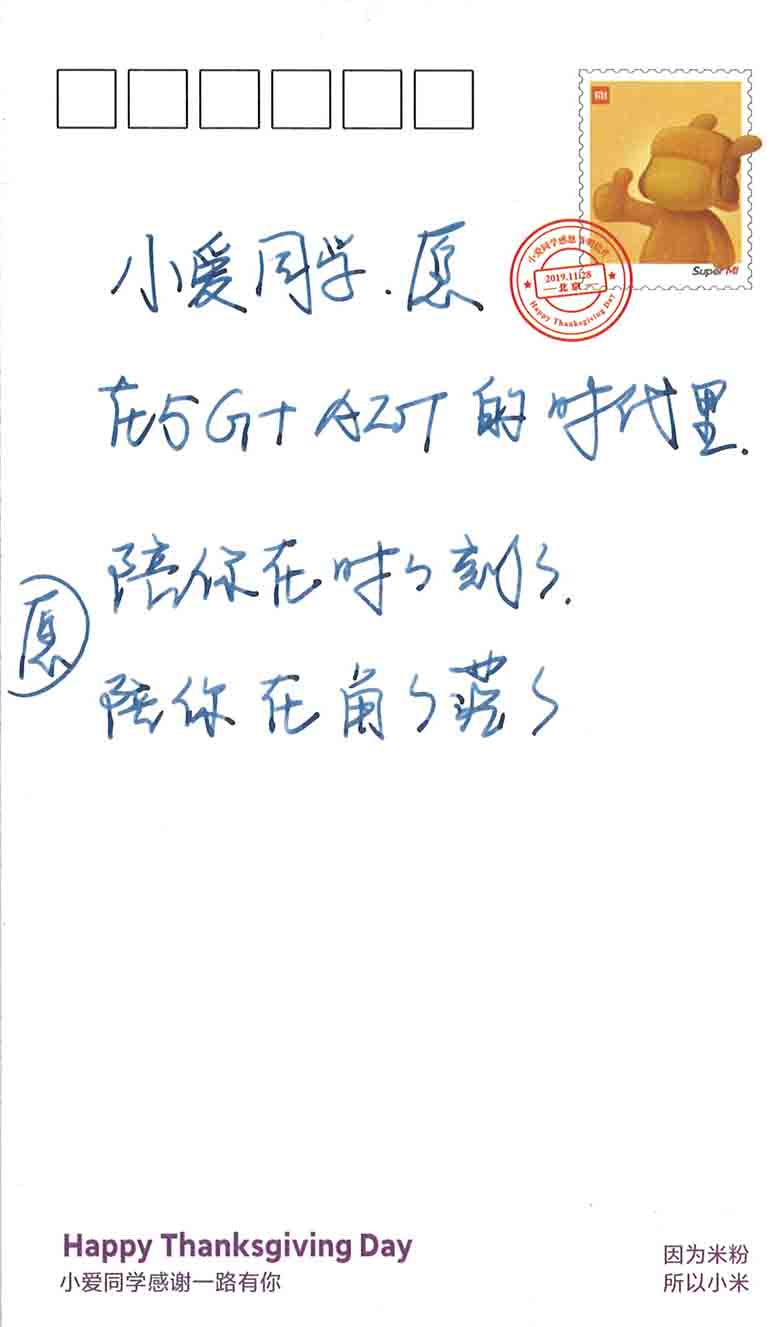 MI
Super MI
小爱同学感恩节明信片
2019.11.28
北京
Happy Thanksgiving Day
小爱同学.愿
在5G+AIoT的时代里.
陪你在时々刻々.
愿
陪你在角々落々
Happy Thanksgiving Day
小爱同学感谢一路有你
因为米粉
所以小米